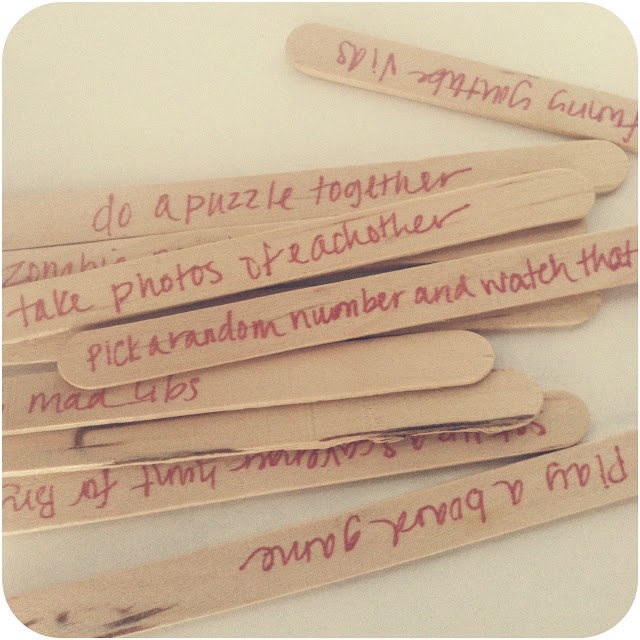 funny youtube vids
do a puzzle together
zombie
take photos of eachother
pick a random number and watch that
mad libs
set up a scavenger hunt for
play a board game